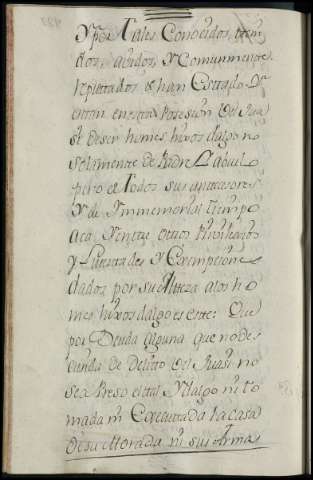 Y por tales Conocidos, teni
dos, avidos, y Comunmente
Reputados, e han Estado
estan en esta Posesion del
de ser homes hixosdalgo no
solamente de Padre Y abuelo
pero de Todos sus antecesores
Y de Ynmemorial tiempo
aca Y entre otros
y Livertades y Exempciones
dadas por su Alteza alos ho
mes hixosdalgo es este: Que
por Deuda alguna que no des
cienda de delito del no
sea Preso el tal Ydalgo ni to
mada ni Executtada la casa
de su Morada ni sus Armas